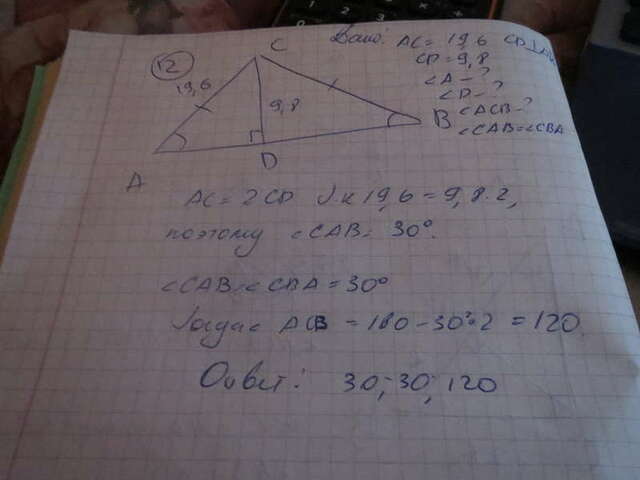 12
Дано: AC = 19,6 CD⊥AB
CD = 9,8
∠A - ?
∠B - ?
∠ACB - ?
∠CAB = ∠CBA
C
19,6
9,8
A
D
B
AC = 2CD т.к 19,6 = 9,8·2,
поэтому ∠CAB = 30°.
∠CAB = ∠CBA = 30°
Тогда ∠ACB = 180 - 30°·2 = 120.
Ответ: 30; 30; 120